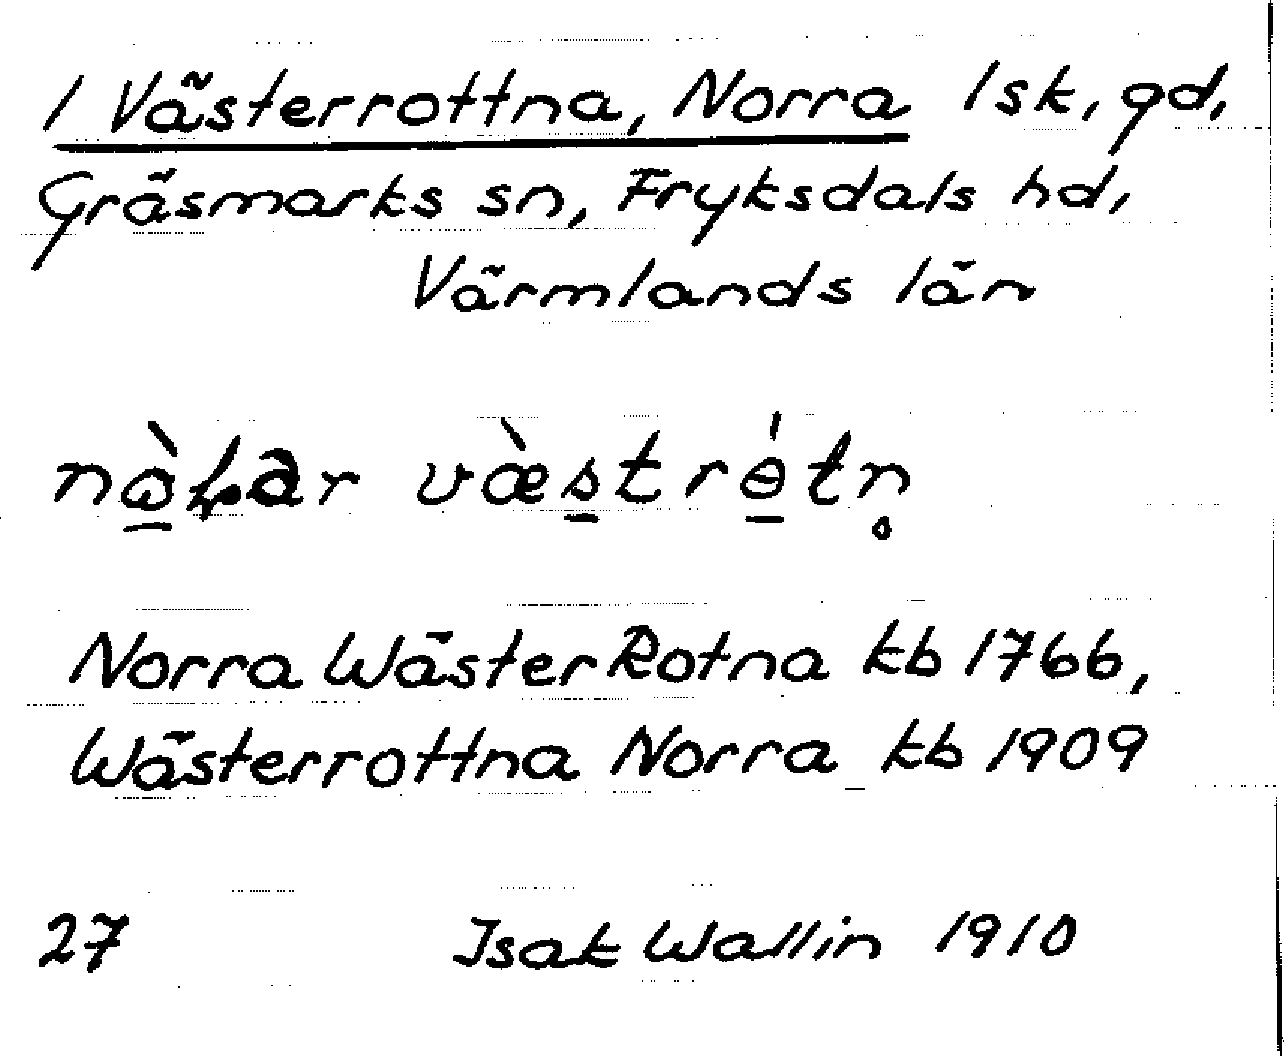 1 Västerrottna, Norra 1sk, gd,
Gräsmarks sn, Fryksdals hd,
Värmlands län
Norra Wäster Rotna kb 1766,
Wästerrottna Norra kb 1909
27 Isak Wallin 1910